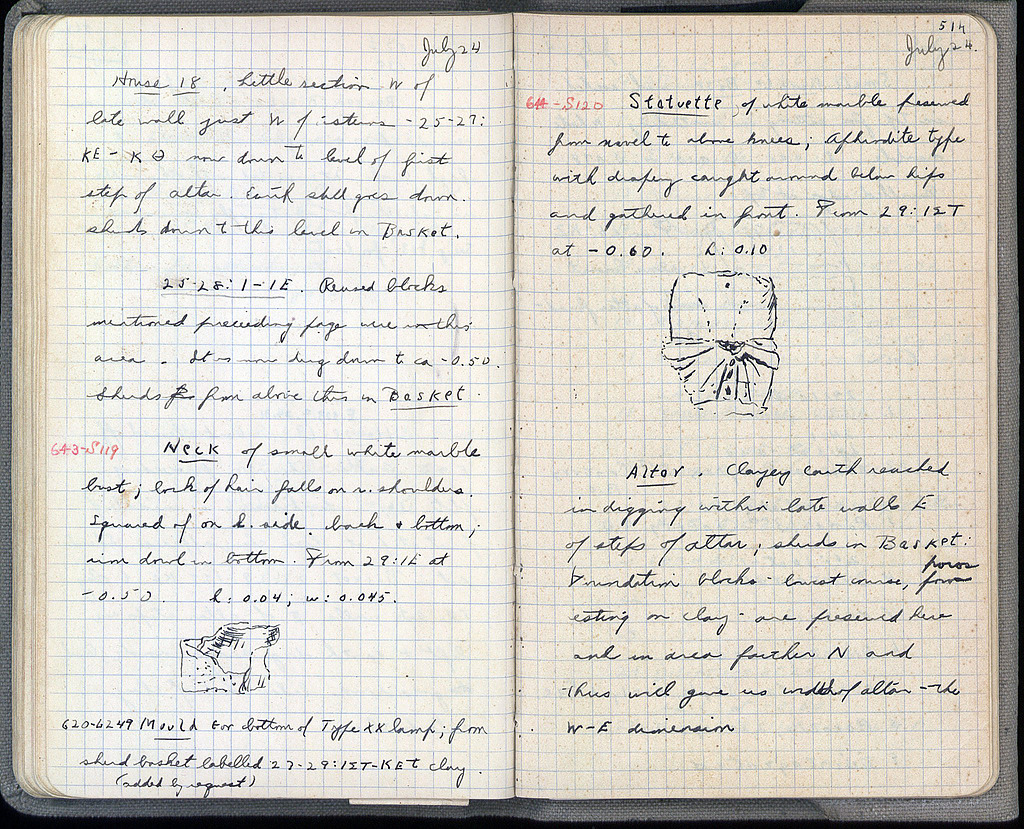 July 24
House 18. Little section W of
late wall just W of cisterns - 25-27:
ΚΕ - ΚΘ now down to level of first
step of altar. Earth still goes down.
sherds down to this level in Basket.
25-28: 1-1E. Reused blocks
mentioned preceeding page were in this
area. It is now dug down to ca -0.50.
Sherds from above this in Basket.
643-S119 Neck of small white marble
bust; lock of hair falls on r. shoulder.
Squared off on l. side, back & bottom;
dowel in bottom. From 29:1E at
-0.50. h: 0.04; w: 0.045.
620-L249 Mould for bottom of Type XX lamp; from
sherd basket labelled 27-29:ΙΣΤ-ΚΕΤ clay.
(added by request)
51
July 24.
644-S120 Statuette of white marble preserved
from navel to above knees; Aphrodite type
with drapery caught around below hips
and gathered in front. From 29:ΙΣΤ
at -0.60. h: 0.10
Altar. Clayey earth reached
in digging within late walls E
of steps of altar; sherds in Basket:
Foundation blocks - lowest course, poros
resting on clay - are preserved here
and in area farther N and
thus will give us width of altar - the
W-E dimension